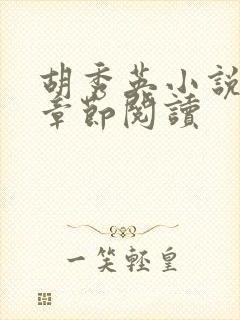 胡秀英小說
章節閱讀
一笑輕皇